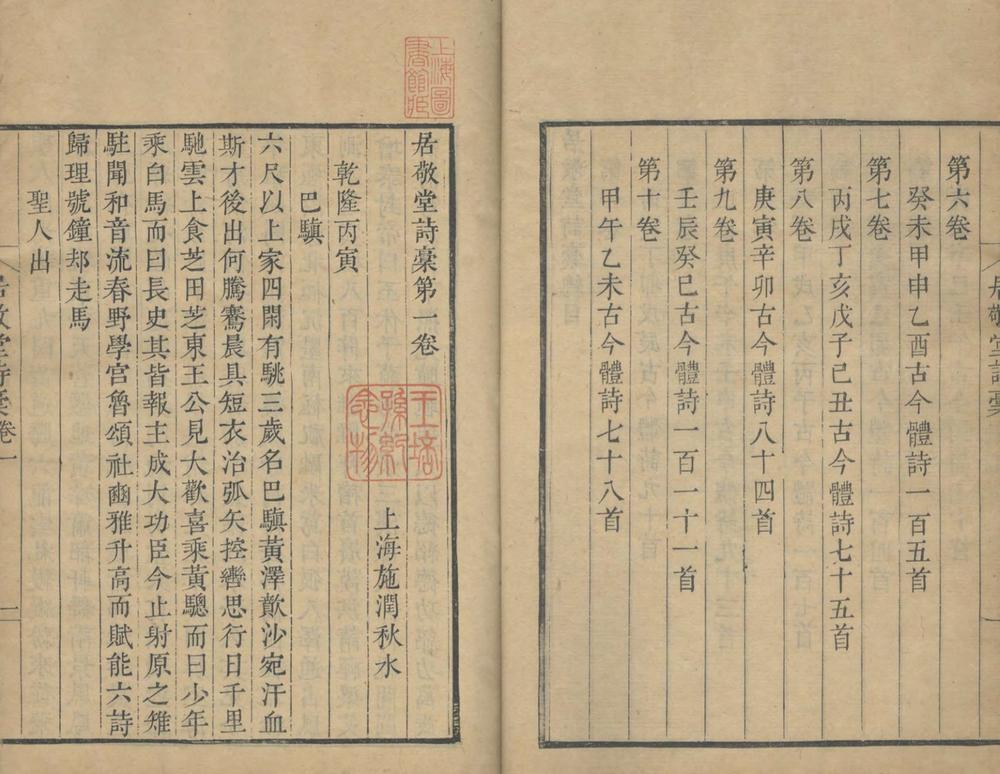 第六卷
癸未甲申乙酉古今體詩一百五首
第七卷
丙戌丁亥戊子己丑古今體詩七十五首
第八卷
庚寅辛卯古今體詩八十四首
第九卷
壬辰癸巳古今體詩一百一十一首
第十卷
甲午乙未古今體詩七十八首
居敬堂詩稾
上海圖書館臧
居敬堂詩稾第一卷
上海施潤秋水
王培孫紀念物
乾隆丙寅
巴驥
六尺以上家四閑有駣三歲名巴驥黃澤歕沙宛汗血
斯才後出何騰騫晨具短衣治弧矢控轡思行日千里
馳雲上食芝田芝東王公見大歡喜乘黃驄而曰少年
乘白馬而曰長史其皆報主成大功臣今止射原之雉
駐聞和音流春野學宮魯頌社豳雅升高而賦能六詩
歸理號鐘却走馬
聖人出
居敬堂詩稾卷一
一